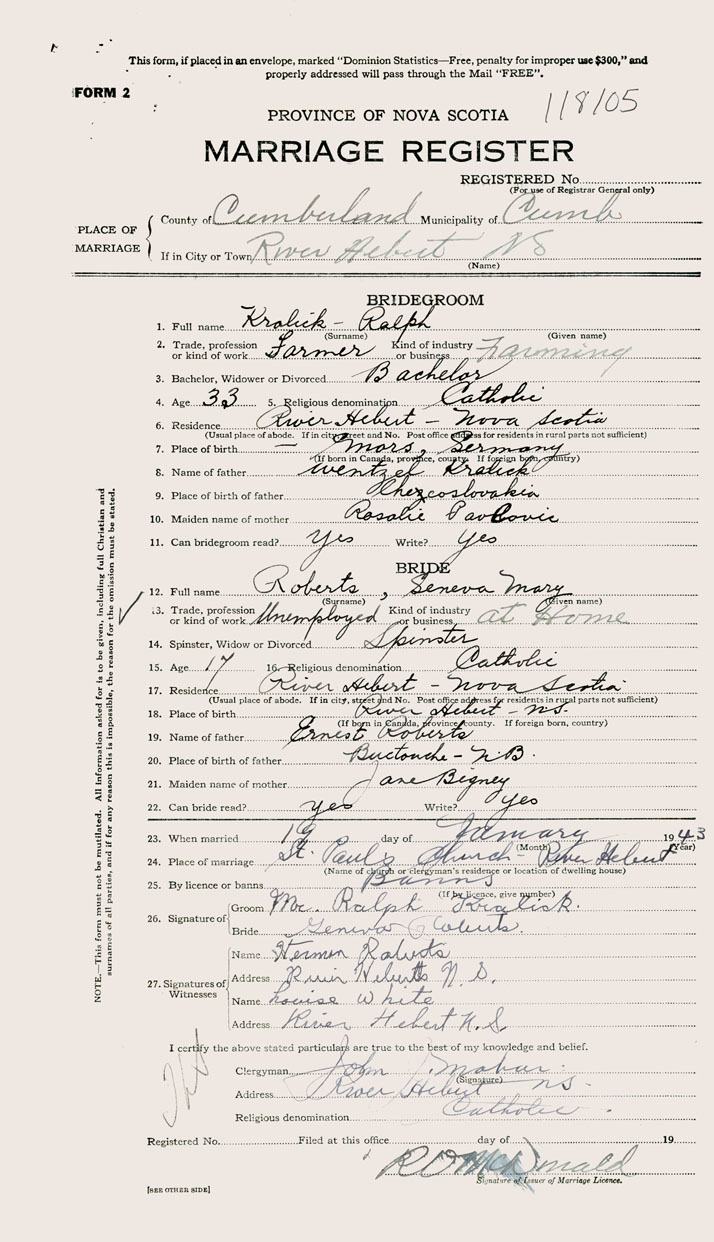 This form, if placed in an envelope, marked "Dominion Statistics—Free, penalty for improper use $300," and
properly addressed will pass through the Mail "FREE".
FORM 2
118105
PROVINCE OF NOVA SCOTIA
MARRIAGE REGISTER
REGISTERED No.
(For use of Registrar General only)
PLACE OF MARRIAGE
County of Cumberland Municipality of Cumb
If in City or Town River Hebert NS
(Name)
BRIDEGROOM
1. Full name Kralick - Ralph
(Surname) (Given name)
2. Trade, profession or kind of work Farmer Kind of industry or business Farming
3. Bachelor, Widower or Divorced Bachelor
4. Age 33 5. Religious denomination Catholic
6. Residence River Hebert - Nova Scotia
(Usual place of abode. If in city, street and No. Post office address for residents in rural parts not sufficient)
7. Place of birth — Mors, Germany
(If born in Canada, province, county. If foreign born, country)
8. Name of father Wentzel Kralick
9. Place of birth of father Chezcoslovakia
10. Maiden name of mother Rosalie Pavlovic
11. Can bridegroom read? Yes Write? Yes
BRIDE
12. Full name Roberts, Geneva Mary
(Surname) (Given name)
13. Trade, profession or kind of work Unemployed Kind of industry or business at Home
14. Spinster, Widow or Divorced Spinster
15. Age 17 16. Religious denomination Catholic
17. Residence River Hebert - Nova Scotia
(Usual place of abode. If in city, street and No. Post office address for residents in rural parts not sufficient)
18. Place of birth River Hebert - N.S.
(If born in Canada, province, county. If foreign born, country)
19. Name of father Ernest Roberts
20. Place of birth of father Buctouche - N.B.
21. Maiden name of mother Jane Bigney
22. Can bride read? yes Write? yes
23. When married 19 day of January 1943
(Month) (Year)
24. Place of marriage St. Paul's Church - River Hebert
(Name of church or clergyman's residence or location of dwelling house)
25. By licence or banns Banns
(If by licence, give number)
26. Signature of
Groom Mr. Ralph Kralick.
Bride Geneva Roberts.
27. Signatures of Witnesses
Name Herman Roberts
Address River Heberts N.S.
Name Louise White
Address River Hebert N.S.
I certify the above stated particulars are true to the best of my knowledge and belief.
Clergyman John
(Signature)
Address River Hebert NS-
Religious denomination Catholic.
Registered No. Filed at this office day of 19
McDonald
Signature of Issuer of Marriage Licence.
[SEE OTHER SIDE]
NOTE.—This form must not be mutilated. All information asked for is to be given, including full Christian and
surnames of all parties, and if for any reason this is impossible, the reason for the omission must be stated.